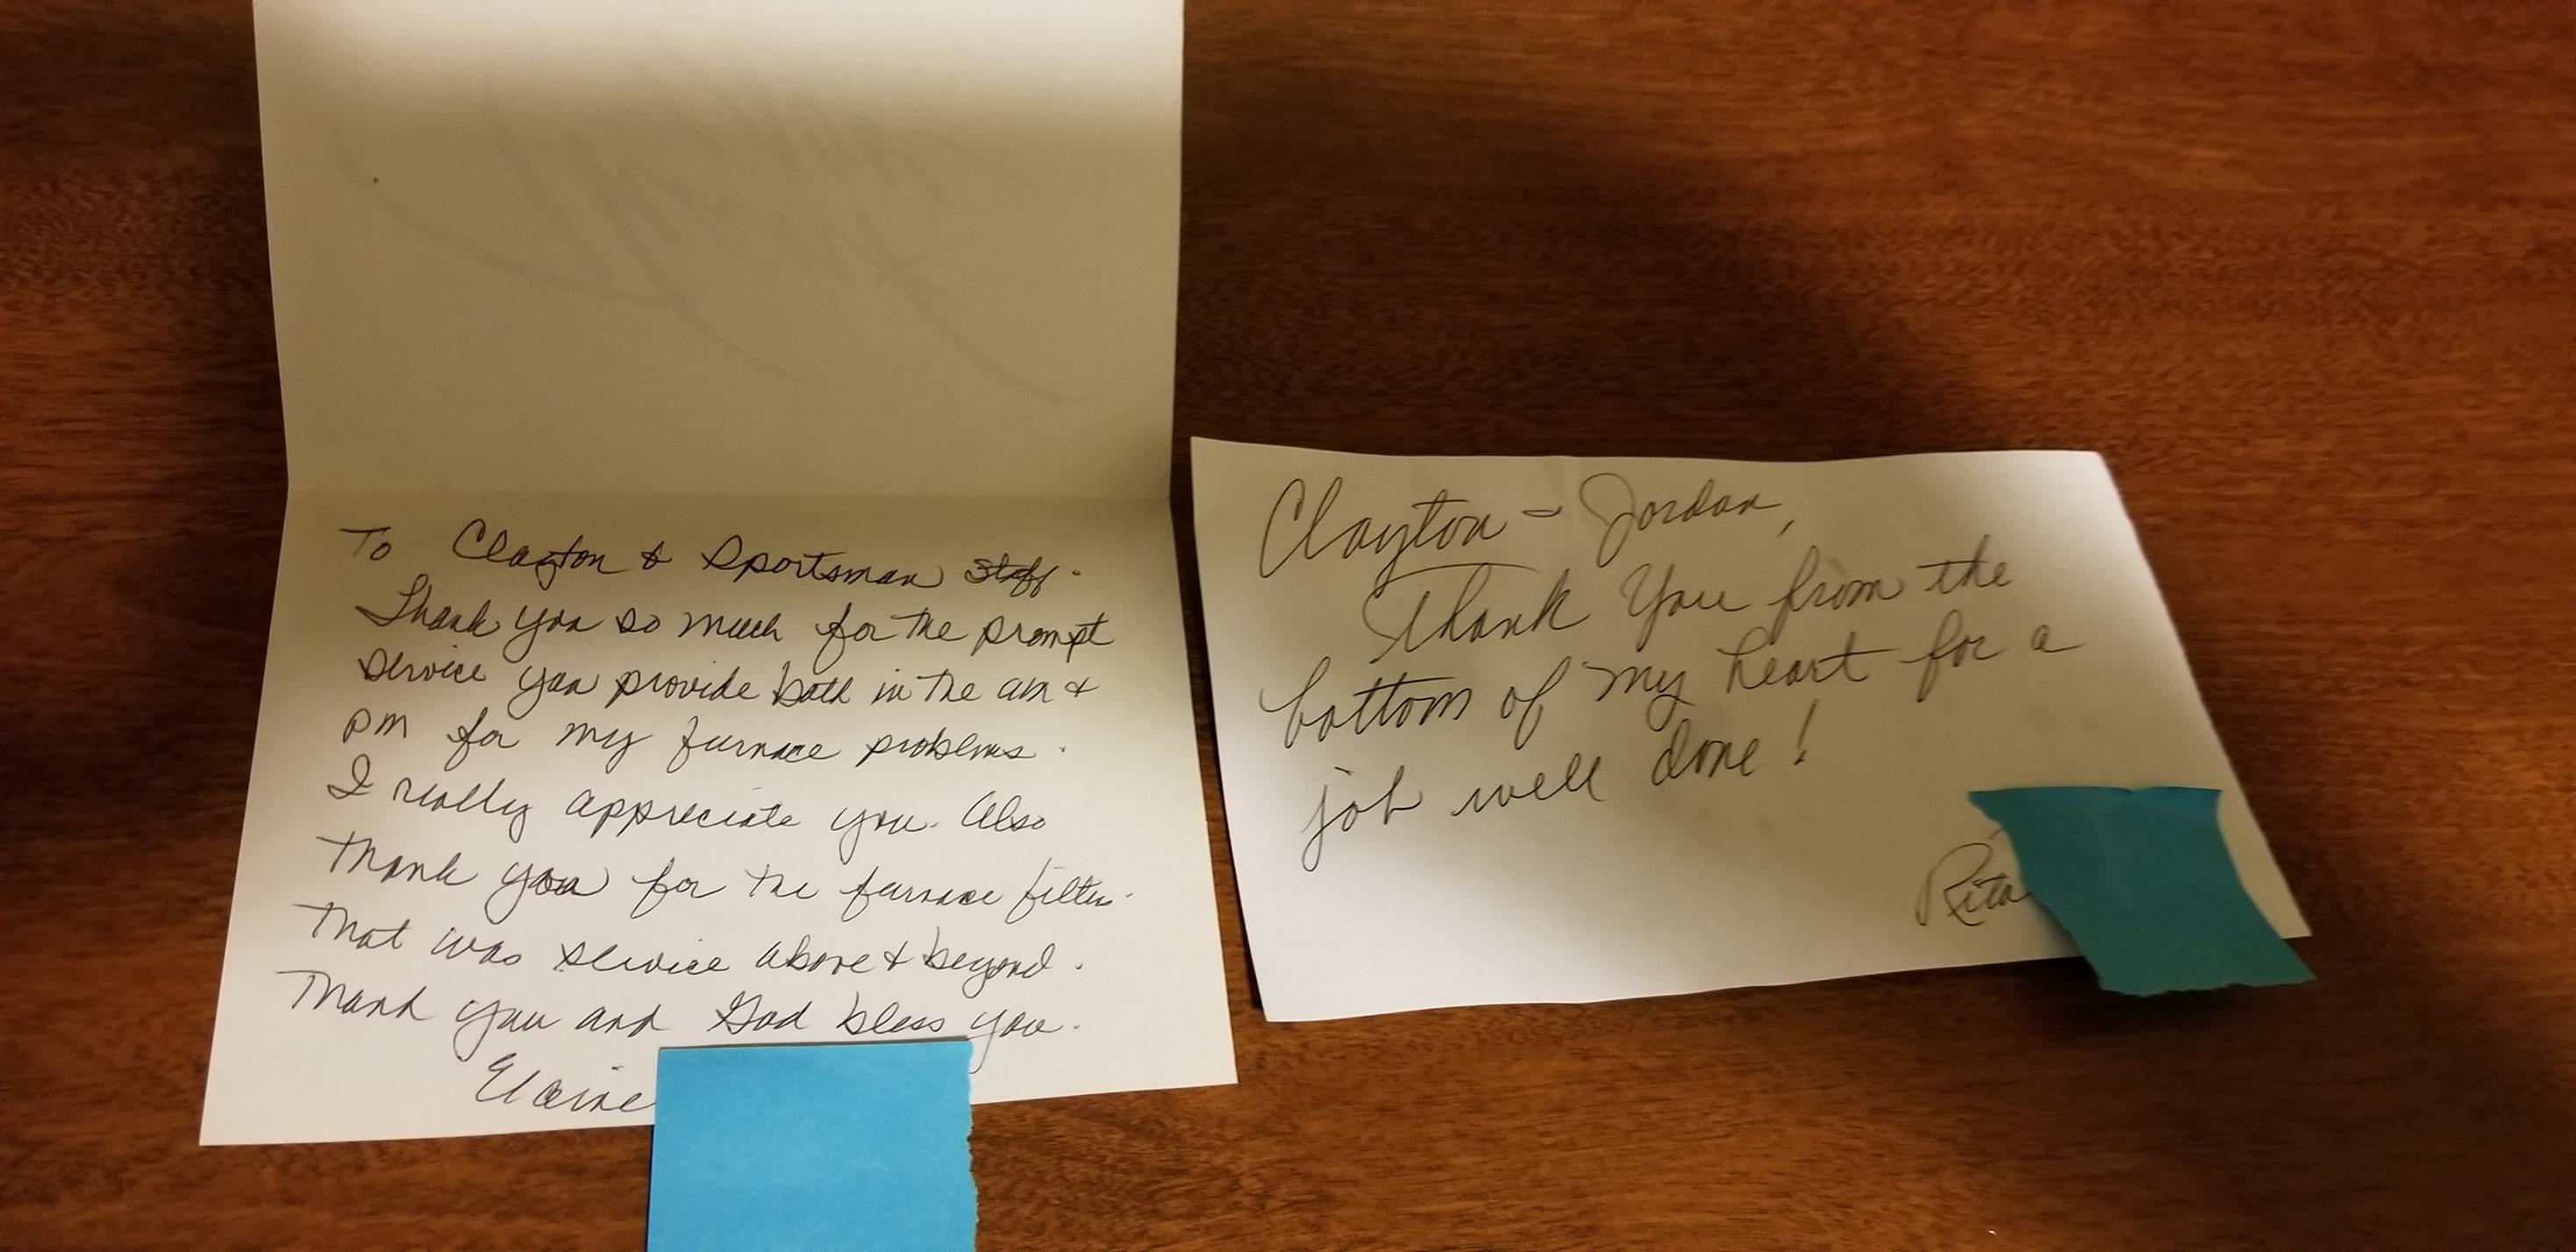 To Clayton & Sportsman Staff.
Thank you so much for the prompt
service you provide both in the am &
pm for my furnace problems.
I really appreciate you. Also
thank you for the furnace filter.
That was service above & beyond.
Thank you and God bless you.
Elaine
Clayton - Jordan,
Thank You from the
bottom of my heart for a
job well done!
Rita